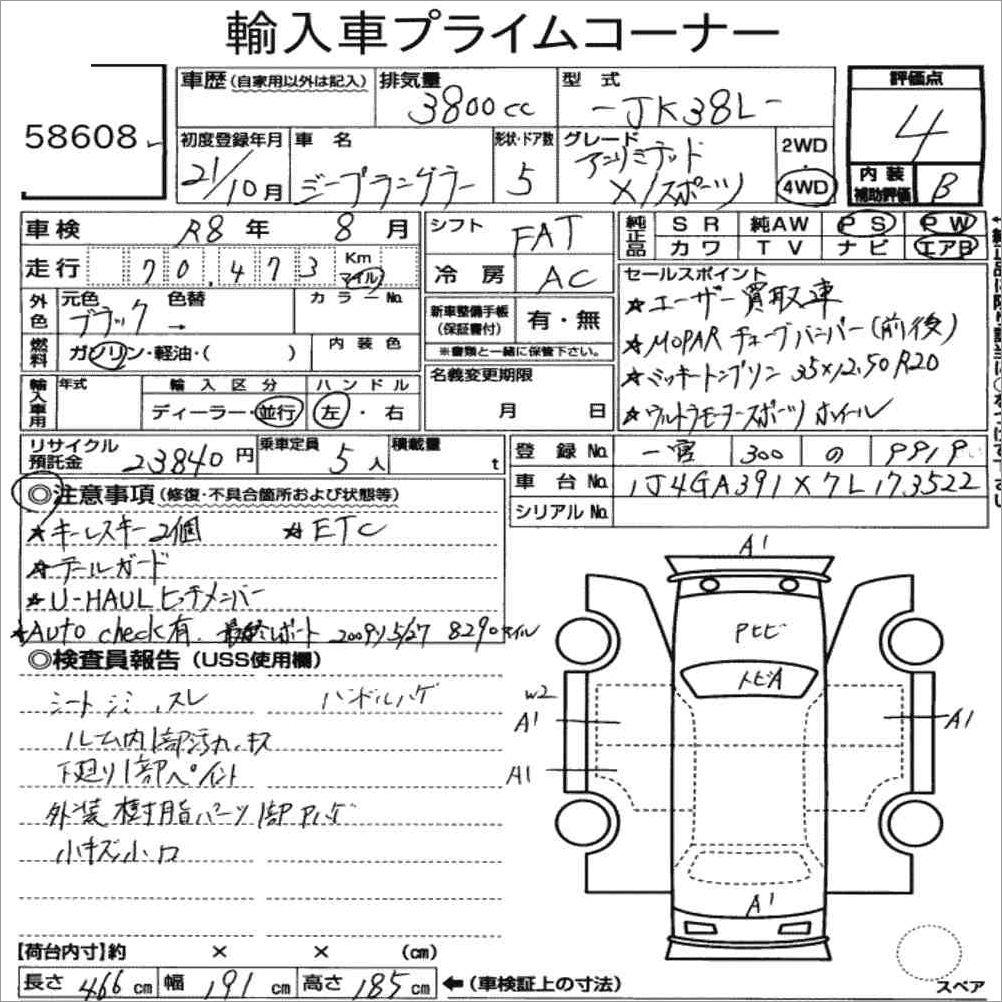 輸入車プライムコーナー
58608
車歴(自家用以外は記入)
排気量 3800cc
型式 -JK38L-
評価点 4
初度登録年月 21/10月
車名 ジープラングラー
形状・ドア数 5
グレード アンリミテッド X/スポーツ
2WD
4WD
内装補助評価 B
車検 R8年 8月
シフト FAT
純正品 SR 純AW PS PW
カワ TV ナビ エアB
走行 70,473 Km マイル
冷房 AC
セールスポイント
★ユーザー買取車
★MOPAR チューブバンパー(前後)
★ミッキートンプソン 35×12.50R20
★ウルトラモータースポーツ ホイール
外色 元色 ブラック → 色替 カラーNo.
新車整備手帳(保証書付) 有・無
※書類と一緒に保管下さい。
燃料 ガソリン・軽油・( ) 内装色
名義変更期限 月 日
輸入車用 年式 輸入区分 ハンドル
ディーラー・並行 左・右
リサイクル預託金 23840円
乗車定員 5人
積載量 t
登録No. 一宮 300 の 9919
車台No. 1J4GA391X7L173522
シリアルNo.
◎注意事項(修復・不具合箇所および状態等)
★キーレスキー2個 ★ETC
★テールガード
★U-HAULヒッチメンバー
★Auto check有. 最終レポート 2009/5/27 8290マイル
◎検査員報告(USS使用欄)
シートシミ,スレ ハンドルハゲ
ルーム内1部汚れ,キズ
下廻り1部ペイント
外装樹脂パーツ1部
小キズ,小凹
A1
Pヒビ
トビA
W2
A1
A1
A1
A1
【荷台内寸】約 × × (cm)
長さ 466cm 幅 191cm 高さ 185cm ←(車検証上の寸法)
スペア